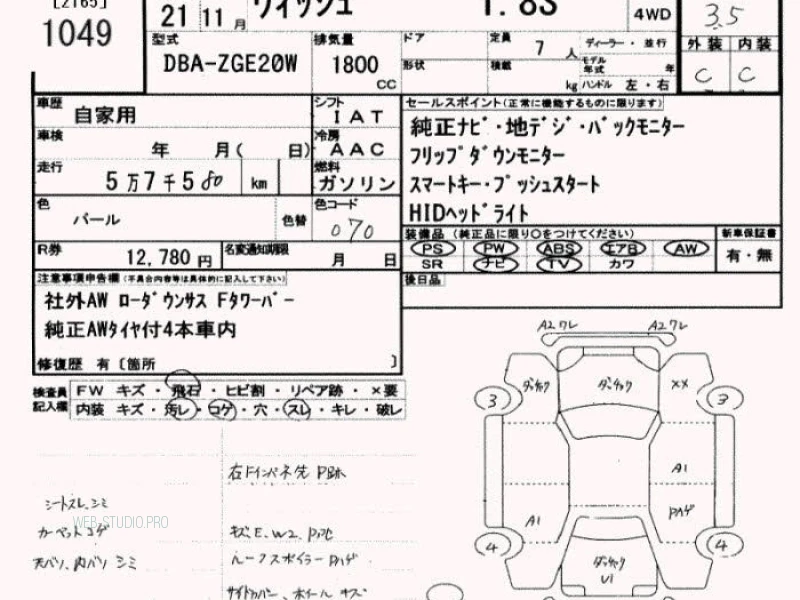 [2165]
1049
21 11月 ウィッシュ 1.8S 4WD 3.5
型式 DBA-ZGE20W
排気量 1800 CC
ドア
形状
定員 7 人
積載 kg
ディーラー・並行
モデル年式 年
ハンドル 左・右
外装 内装
C C
車歴 自家用
シフト IAT
車検 年 月( 日)
冷房 AAC
走行 5万7千580 km
燃料 ガソリン
色 パール 色替
色コード 070
R券 12,780円
名変通知期限 月 日
セールスポイント(正常に機能するものに限ります)
純正ナビ・地デジ・バックモニター
フリップダウンモニター
スマートキー・プッシュスタート
HIDヘッドライト
装備品 (純正品に限り○をつけてください) 新車保証書
PS PW ABS エアB AW 有・無
SR ナビ TV カワ
後日品
注意事項申告欄(不具合内容等は具体的に記入して下さい)
社外AW ローダウンサス Fタワーバー
純正AWタイヤ付4本車内
修復歴 有〔箇所 〕
検査員記入欄
FW キズ・飛石・ヒビ割・リペア跡・×要
内装 キズ・汚レ・コゲ・穴・スレ・キレ・破レ
シートスレ、シミ
カーペットコゲ
天バリ、内バリ シミ
右Fインパネ先 P跡
キズE、W2、
ルーフスポイラー Pハゲ
サイドカバー、ホイール キズ
A2ワレ A2ワレ
ダッチック ダッチック ××
3 3
A1
A1 Pハゲ
4 4
ダッチック
U1
WEB-STUDIO.PRO